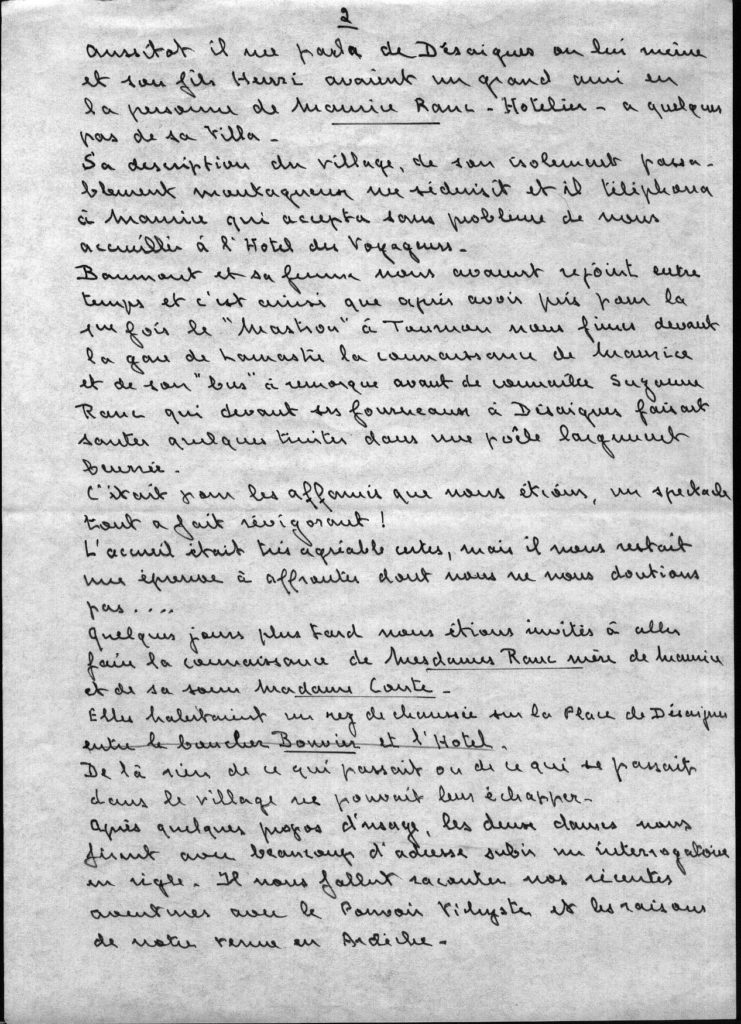 2
Aussitot il me parla de Désaignes ou lui même
et son fils Henri avaient un grand ami en
la personne de Maurice Ranc - Hotelier - a quelques
pas de sa Villa -
Sa description du village, de son isolement passa-
blement montagneux me séduisit et il téléphona
à Maurice qui accepta sans probleme de nous
accueillir à l'Hotel des Voyageurs -
Baumont et sa femme nous avaient rejoint entre
temps et c'est ainsi que après avoir pris pour la
1ere fois le "Mastrou" à Tournon nous fimes devant
la gare de Lamastre la connaissance de Maurice
et de son "bus" à remorque avant de connaitre Suzanne
Ranc qui devant ses fourneaux à Désaignes faisait
sauter quelques truites dans une poêle largement
beurrée.
C'était pour les affamés que nous étions, un spectacle
tout a fait révigorant !
L'accueil était très agréable certes, mais il nous restait
une épreuve à affronter dont nous ne nous doutions
pas ....
Quelques jours plus tard nous étions invités à aller
faire la connaissance de Mesdames Ranc mère de Maurice
et de sa soeur Madame Conte -
Elles habitaient un rez de chaussée sur la Place de Désaignes
entre le boucher Bouvier et l'Hotel.
De là rien de ce qui passait ou de ce qui se passait
dans le village ne pouvait leur échapper -
Après quelques propos d'usage, les deux dames nous
firent avec beaucoup d'adresse subir un interrogatoire
en règle. Il nous fallut raconter nos récentes
aventures avec le Pouvoir Vichyste et les raisons
de notre venue en Ardèche -